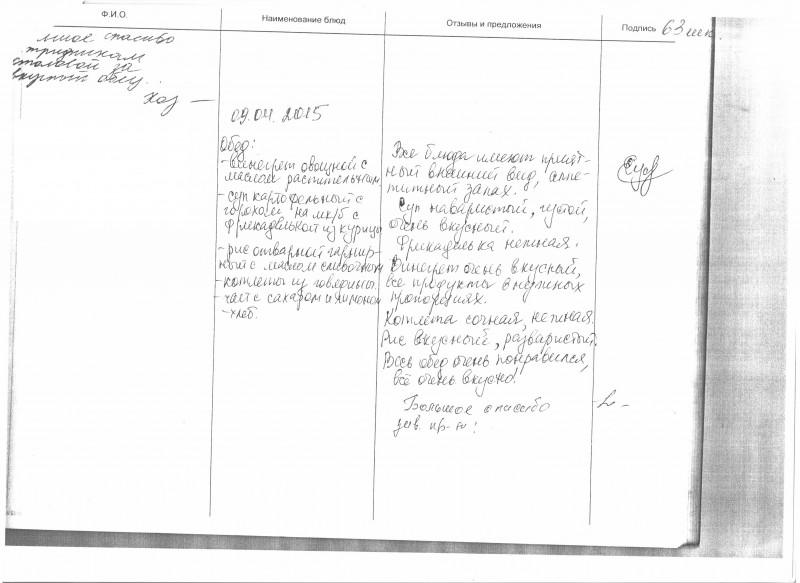 Ф.И.О.
Наименование блюд
Отзывы и предложения
Подпись
63 шк.
спасибо
столовой за
вкусный обед.
09.04.2015
Обед:
- винегрет овощной с
маслом растительным
- суп картофельный с
горохом на мк/б с
фрикаделькой из курицы
- рис отварной гарнир-
ный с маслом сливочным
- котлеты из говядины.
- чай с сахаром и лимоном
- хлеб.
Все блюда имеют прият-
ный внешний вид, аппе-
титный запах.
Суп наваристый, густой,
очень вкусный.
Фрикаделька нежная.
Винегрет очень вкусный,
все продукты в нужных
пропорциях.
Котлета сочная, нежная.
Рис вкусный, разваристый.
Весь обед очень понравился,
всё очень вкусно!
Большое спасибо
зав. пр-ва!